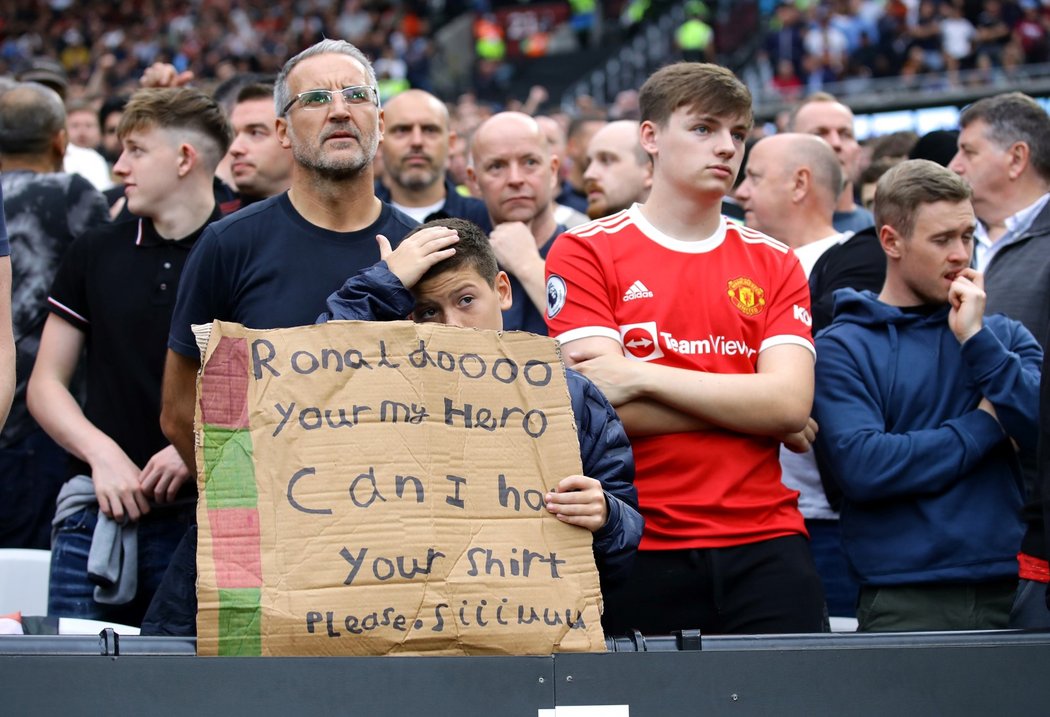 Ronaldoooo
Your My Hero
Can I ha
Your Shirt
Please. Siiiuuu
adidas
TeamViewer
KOHL